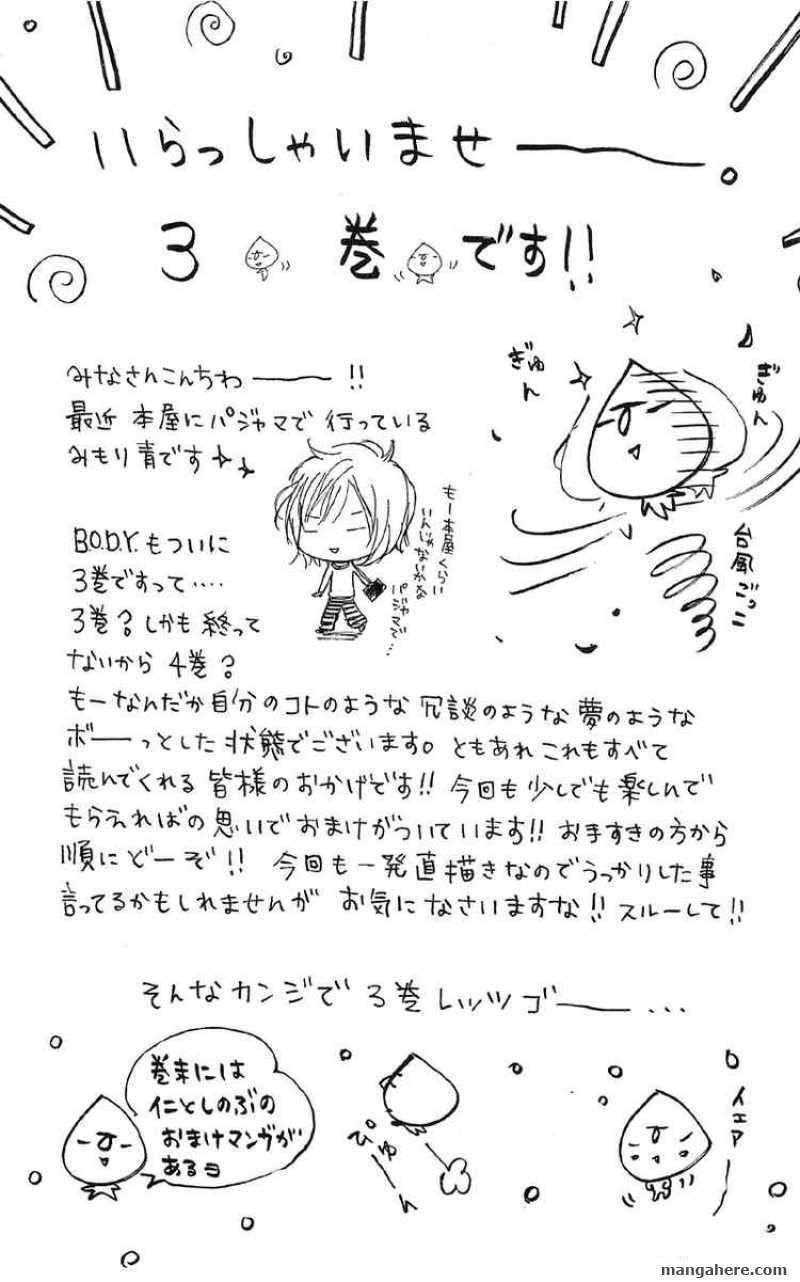 いらっしゃいませー。
3巻です!!
みなさんこんちわー!!
最近 本屋にパジャマで 行っている
みもり青です
もー本屋くらい
いんじゃないかな
パジャマで…
ぎゅん
ぎゅん
台風ごっこ
B.O.D.Y.もついに
3巻ですって‥‥
3巻？しかも 終って
ないから 4巻？
もーなんだか自分のコトのような 冗談のような夢のような
ボーっとした 状態でございます。ともあれ これもすべて
読んでくれる 皆様のおかげです!! 今回も少しでも楽しんで
もらえればの思いで おまけがついています!! お手すきの方から
順にどーぞ!! 今回も一発直描きなのでうっかりした事
言ってるかもしれませんが お気になさいますな!! スルーして!!
そんなカンジで 3巻 レッツゴー…
巻末には
仁としのぶの
おまけマンガが
あるヨ
ぴゅーん
イエアー
mangahere.com